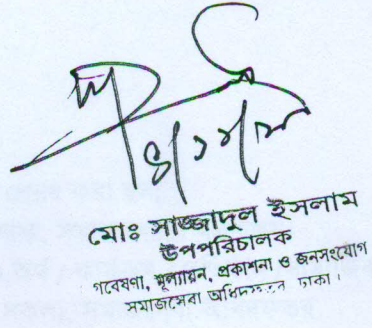 মোঃ সাজ্জাদুল ইসলাম
উপপরিচালক
গবেষণা, মূল্যায়ন, প্রকাশনা ও জনসংযোগ
সমাজসেবা অধিদফতর ঢাকা।